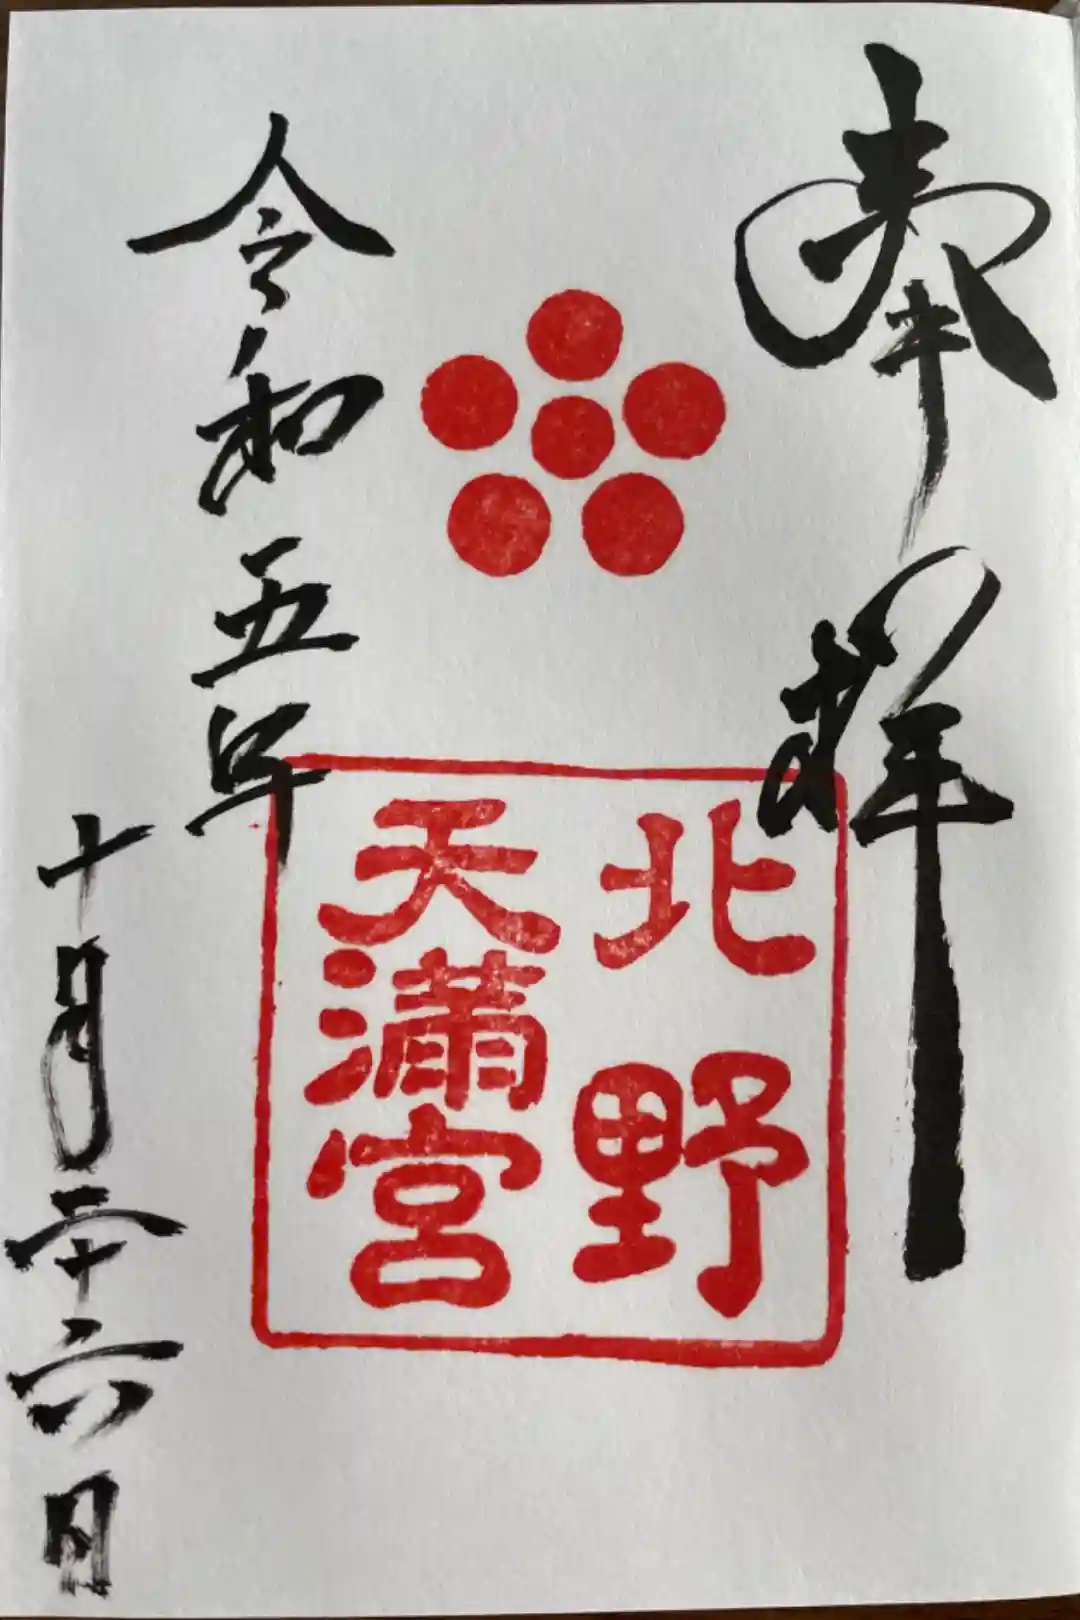 奉拝
北野
天満宮
令和五年
十月二十六日